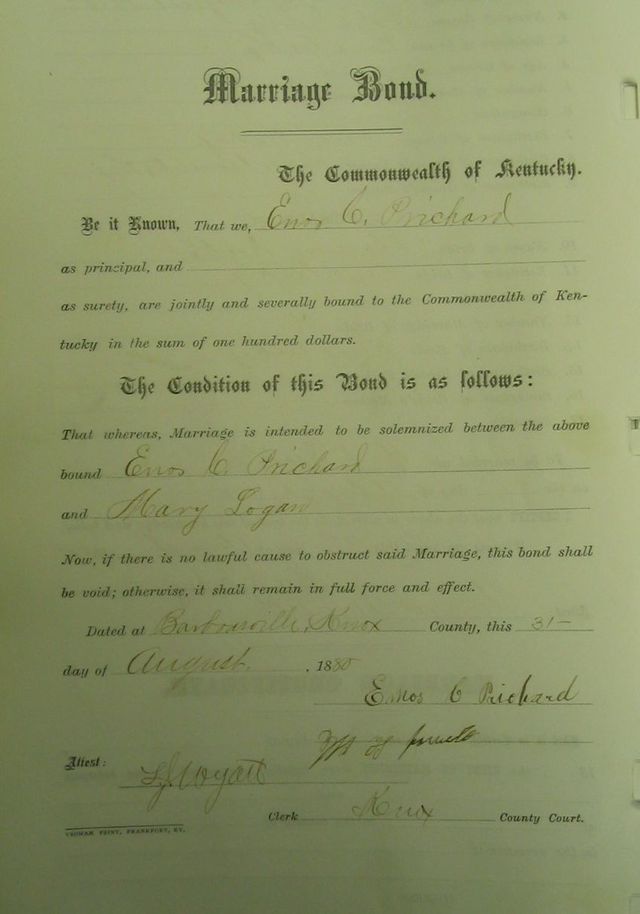 Marriage Bond.
The Commonwealth of Kentucky.
Be it Known, That we, Enos C. Prichard
as principal, and
as surety, are jointly and severally bound to the Commonwealth of Ken-
tucky in the sum of one hundred dollars.
The Condition of this Bond is as follows:
That whereas, Marriage is intended to be solemnized between the above
bound Enos C. Prichard
and Mary Logan
Now, if there is no lawful cause to obstruct said Marriage, this bond shall
be void; otherwise, it shall remain in full force and effect.
Dated at Barbourville, Knox County, this 31-
day of August. , 1880
Enos C Prichard
Attest:
Wyatt
Clerk Knox County Court.
YEOMAN PRINT, FRANKFORT, KY.